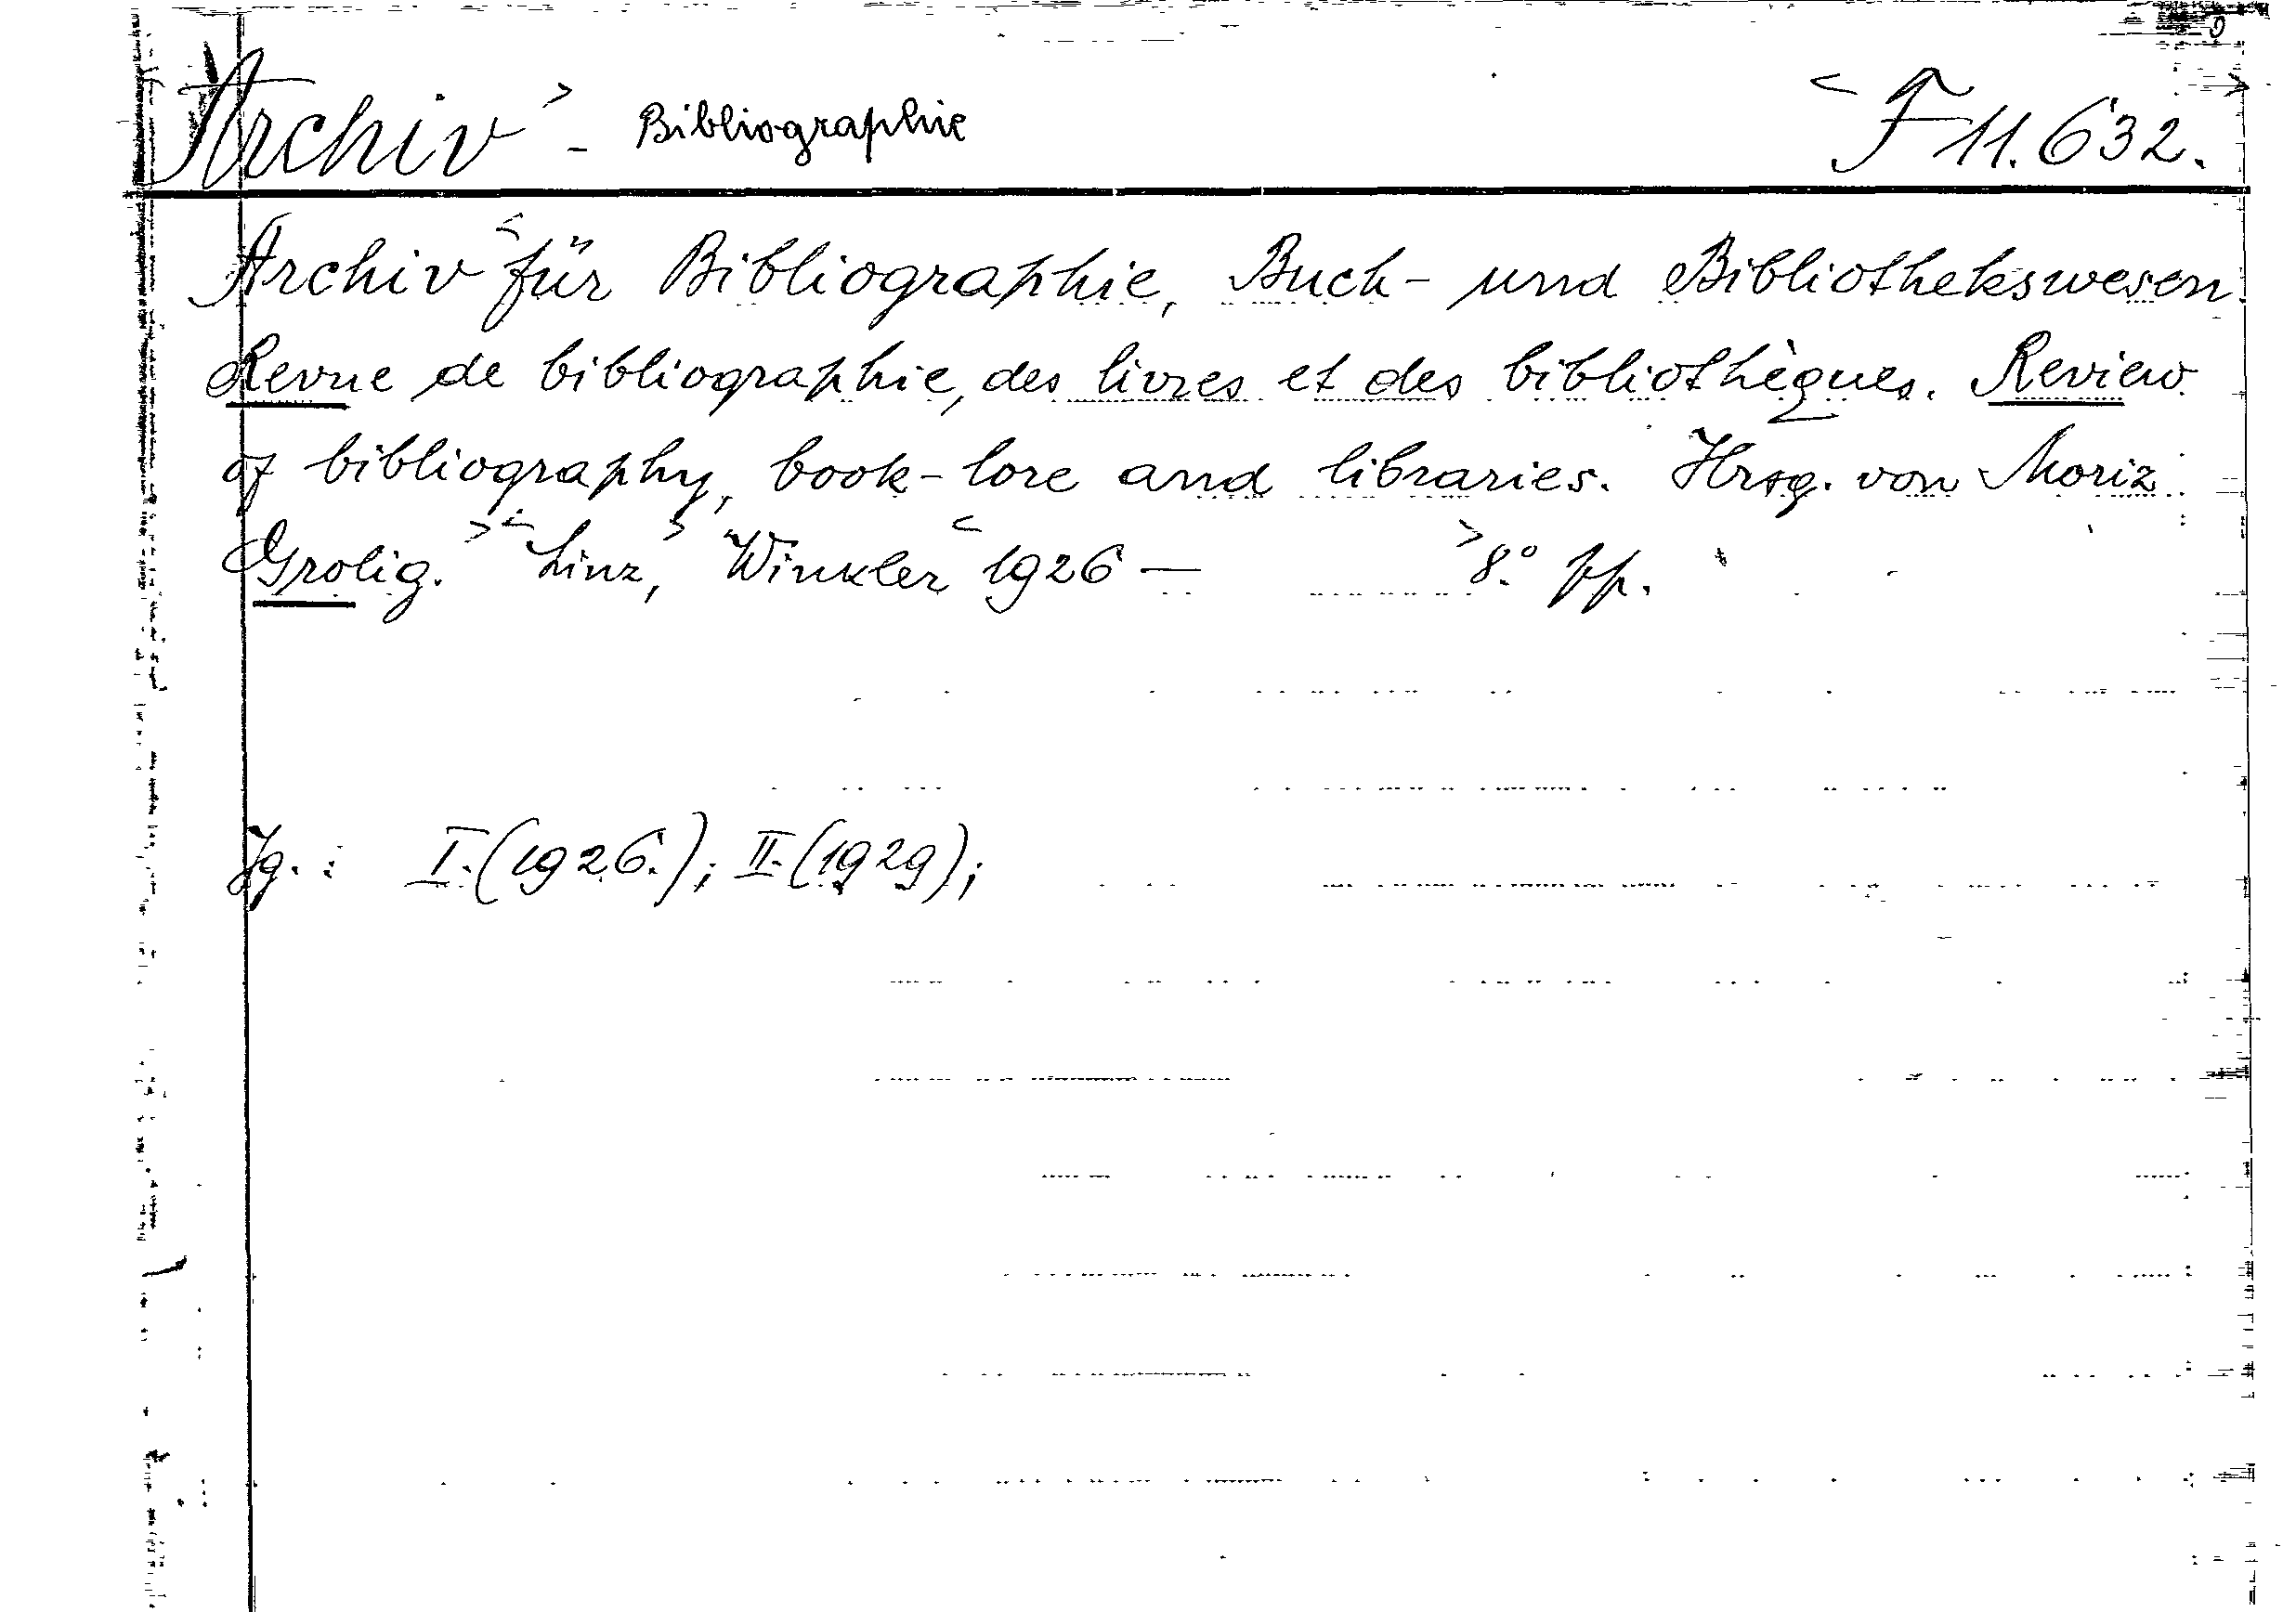 Archiv - Bibliographie F 11.632.
Archiv für Bibliographie, Buch- und Bibliothekswesen.
Revue de bibliographie, des livres et des bibliothèques. Review
of bibliography, book-lore and libraries. Hrsg. von Moriz
Grolig. Linz, Winkler 1926 — 8.° pp.
Jg.: I. (1926.); II. (1929);